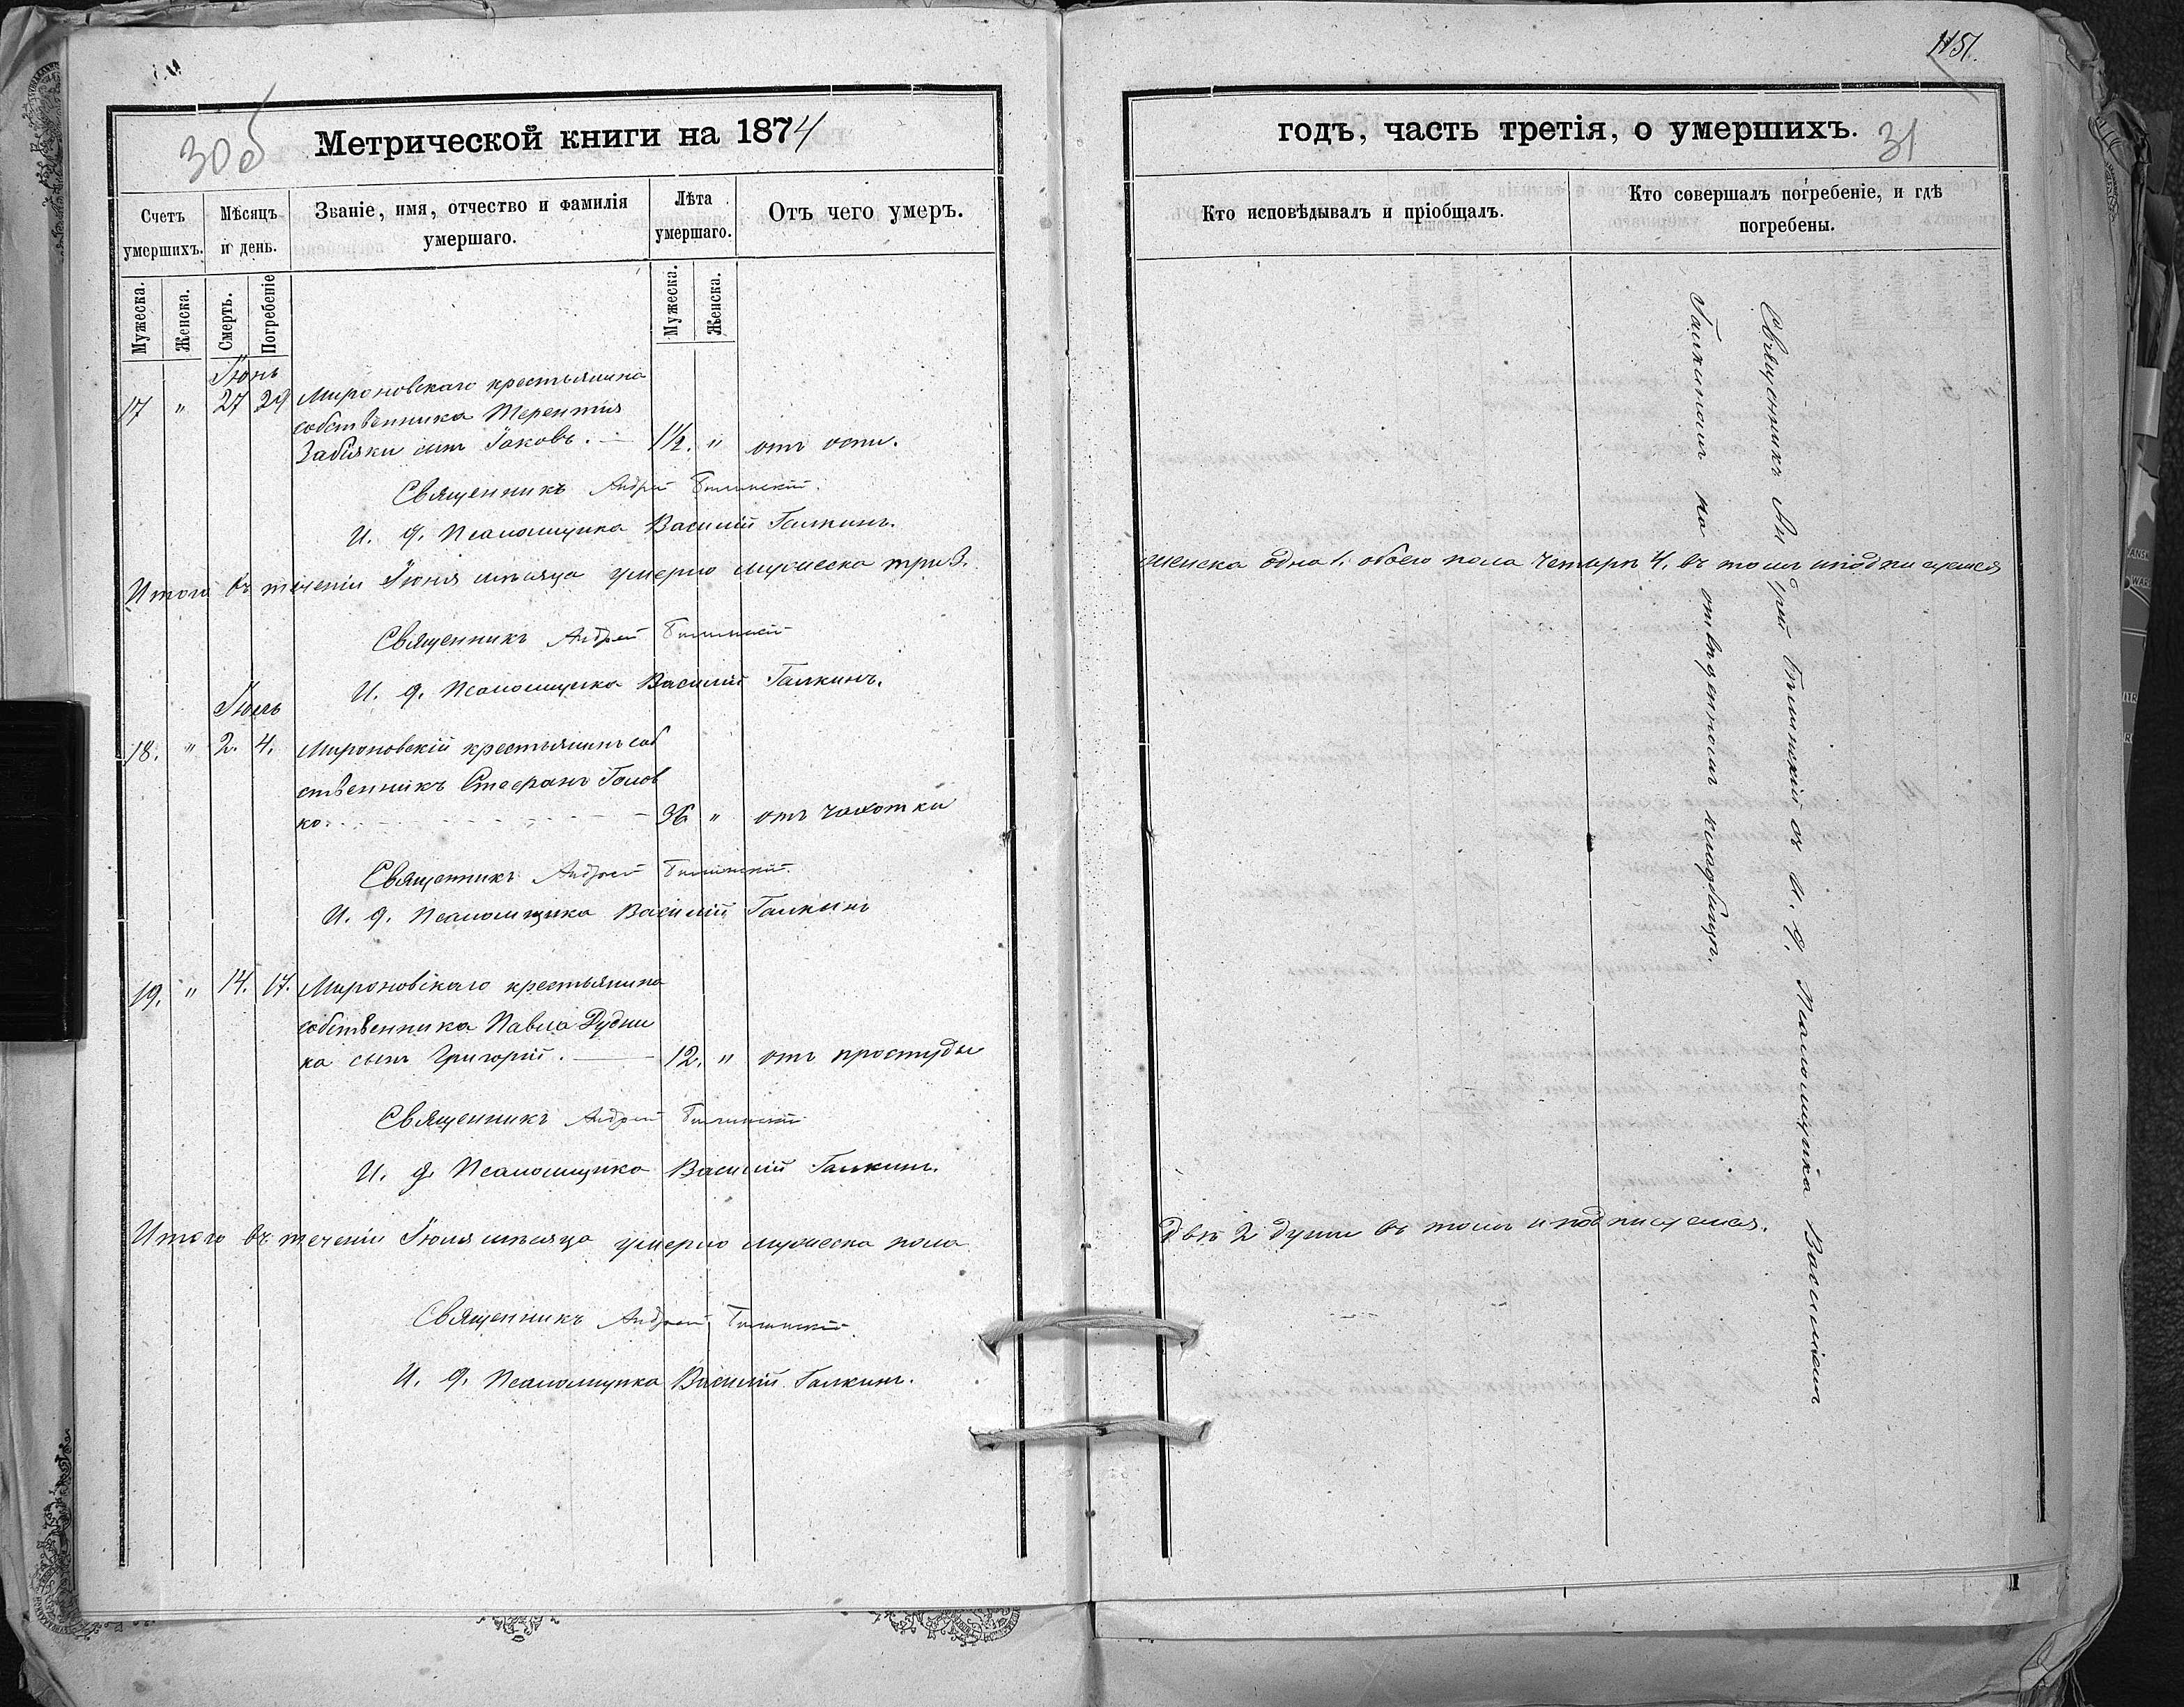 30об
Метрической книги на 1874
Счетъ умершихъ.
Мѣсяцъ и день.
Званіе, имя, отчество и фамилія умершаго.
Лѣта умершаго.
Отъ чего умеръ.
Мужеска.
Женска.
Смерть.
Погребеніе
Мужеска.
Женска.
Іюнь
17 " 27 29 Мироновскаго крестьянина
собственника Терентия
Забіяки сынъ Іаковъ. — 1½. " отъ оспи.
Священникъ Андрей
И. д. Псаломщика Василій Галкинъ.
Итого въ теченіи Іюня мѣсяца умерло мужеска три 3.
Священникъ Андрей
И. д. Псаломщика Василій Галкинъ.
Іюль
18. " 2. 4. Мироновскій крестьянинъ соб
ственникъ Стефанъ Голов
ко. 36 " отъ чахотки
Священникъ Андрей
И. д. Псаломщика Василій Галкинъ
19. " 14. 17. Мироновскаго крестьянина
собственника Павла Рудни
ка сынъ Григорій. — 12. " отъ простуды
Священникъ Андрей
И. д. Псаломщика Василій Галкинъ.
Итого въ теченіи Іюля мѣсяца умерло мужеска пола
Священникъ Андрей
И. д. Псаломщика Василій Галкинъ.
151.
годъ, часть третія, о умершихъ.
31
Кто исповѣдывалъ и пріобщалъ.
Кто совершалъ погребеніе, и гдѣ
погребены.
женска одна 1. обоего пола четыри 4. въ томъ и подписуемся
Священникъ Андрей съ И. д. Псаломщика Василіемъ
Галкинымъ на отведенномъ кладбищѣ.
Двѣ 2 души въ томъ и подписуемся.